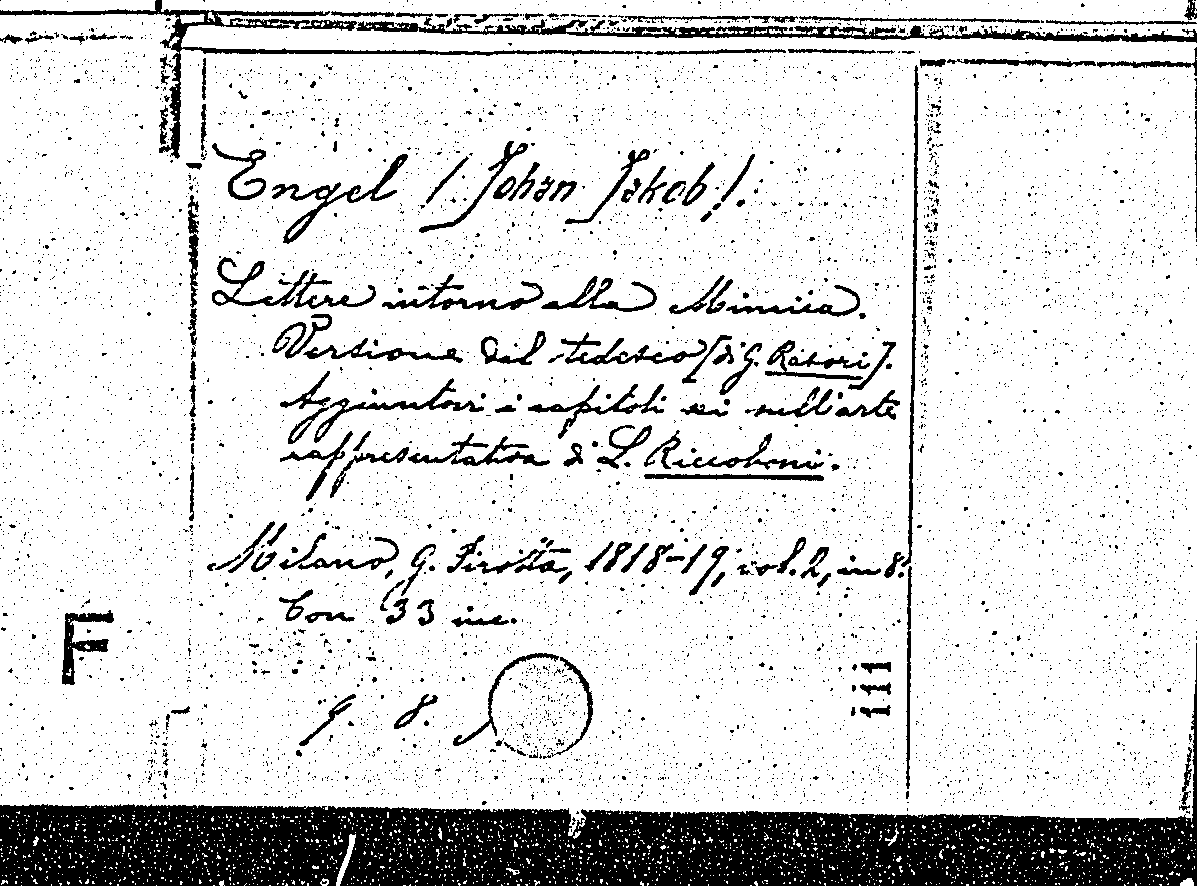 Engel /: Johan Jakob :/.
Lettere intorno alla Mimica.
Versione dal tedesco [di G. Rasori].
Aggiuntovi i capitoli sei sull'arte
rappresentativa di L. Riccoboni.
Milano, G. Pirotta, 1818-19, vol. 2, in 8.°
Con 33 inc.
F
iii
9. 8.